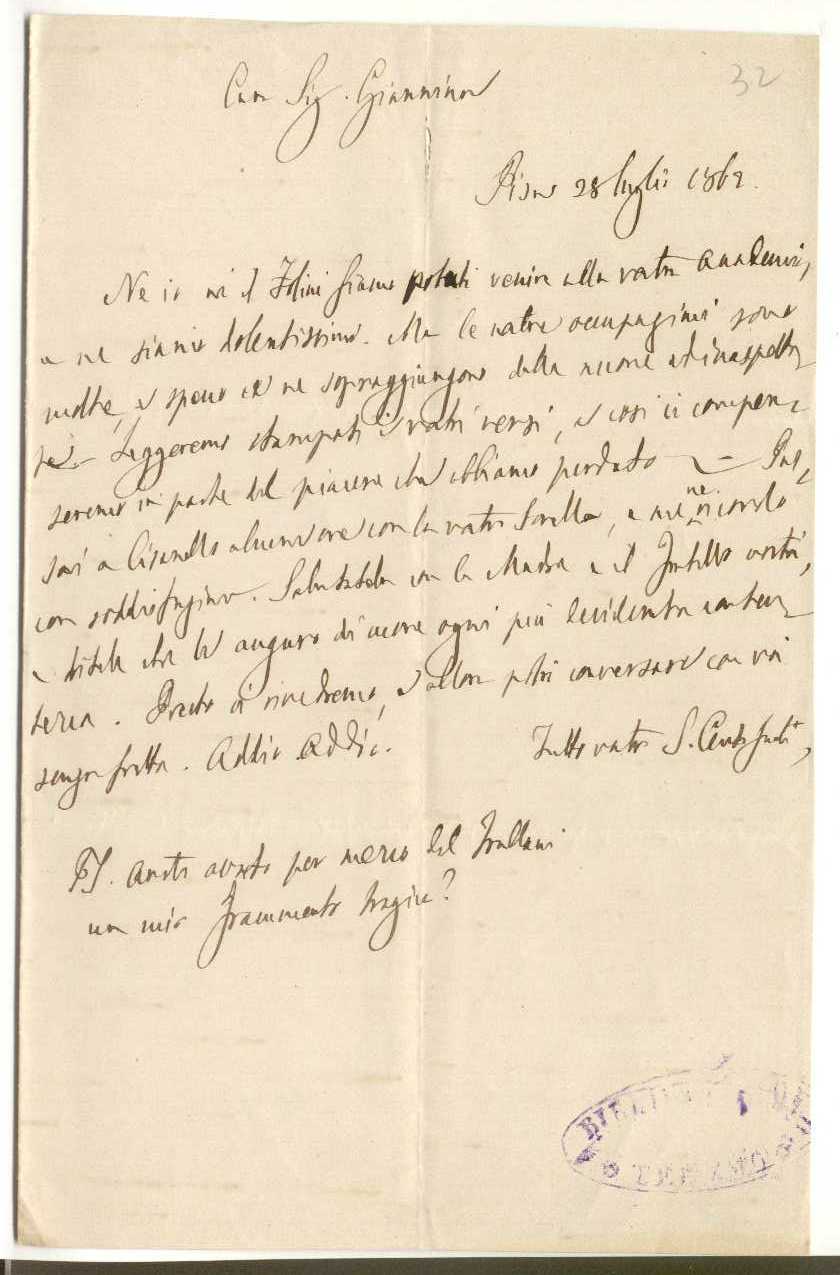 Caro Sig. Giannina
32
Pisa 28 luglio 1862.
Ne io ne il siamo potuti venire alla vostra Accademia,
e ne siamo dolentissimi. Ma le nostre occupazioni sono
molte, e spesso ce ne sopraggiungono delle nuove ed inaspetta-
te. Leggeremo stampati i vostri versi, e così ci compen-
seremo in parte del piacere che abbiamo perduto — Pas-
sai a Cisanello alcune ore con la vostra Sorella, e me ne ricordo
con soddisfazione. Salutatela con la Madre e il Fratello vostri,
e ditele che le auguro di cuore ogni più desiderata conten-
tezza. Presto ci rivedremo, e allora potrò conversare con voi
senza fretta. Addio Addio.
Tutto vostro S. Centofanti,
PS. Avete avuto per mezzo del Frullani
un mio frammento tragico?
BIBLIOTECA
TERAMO